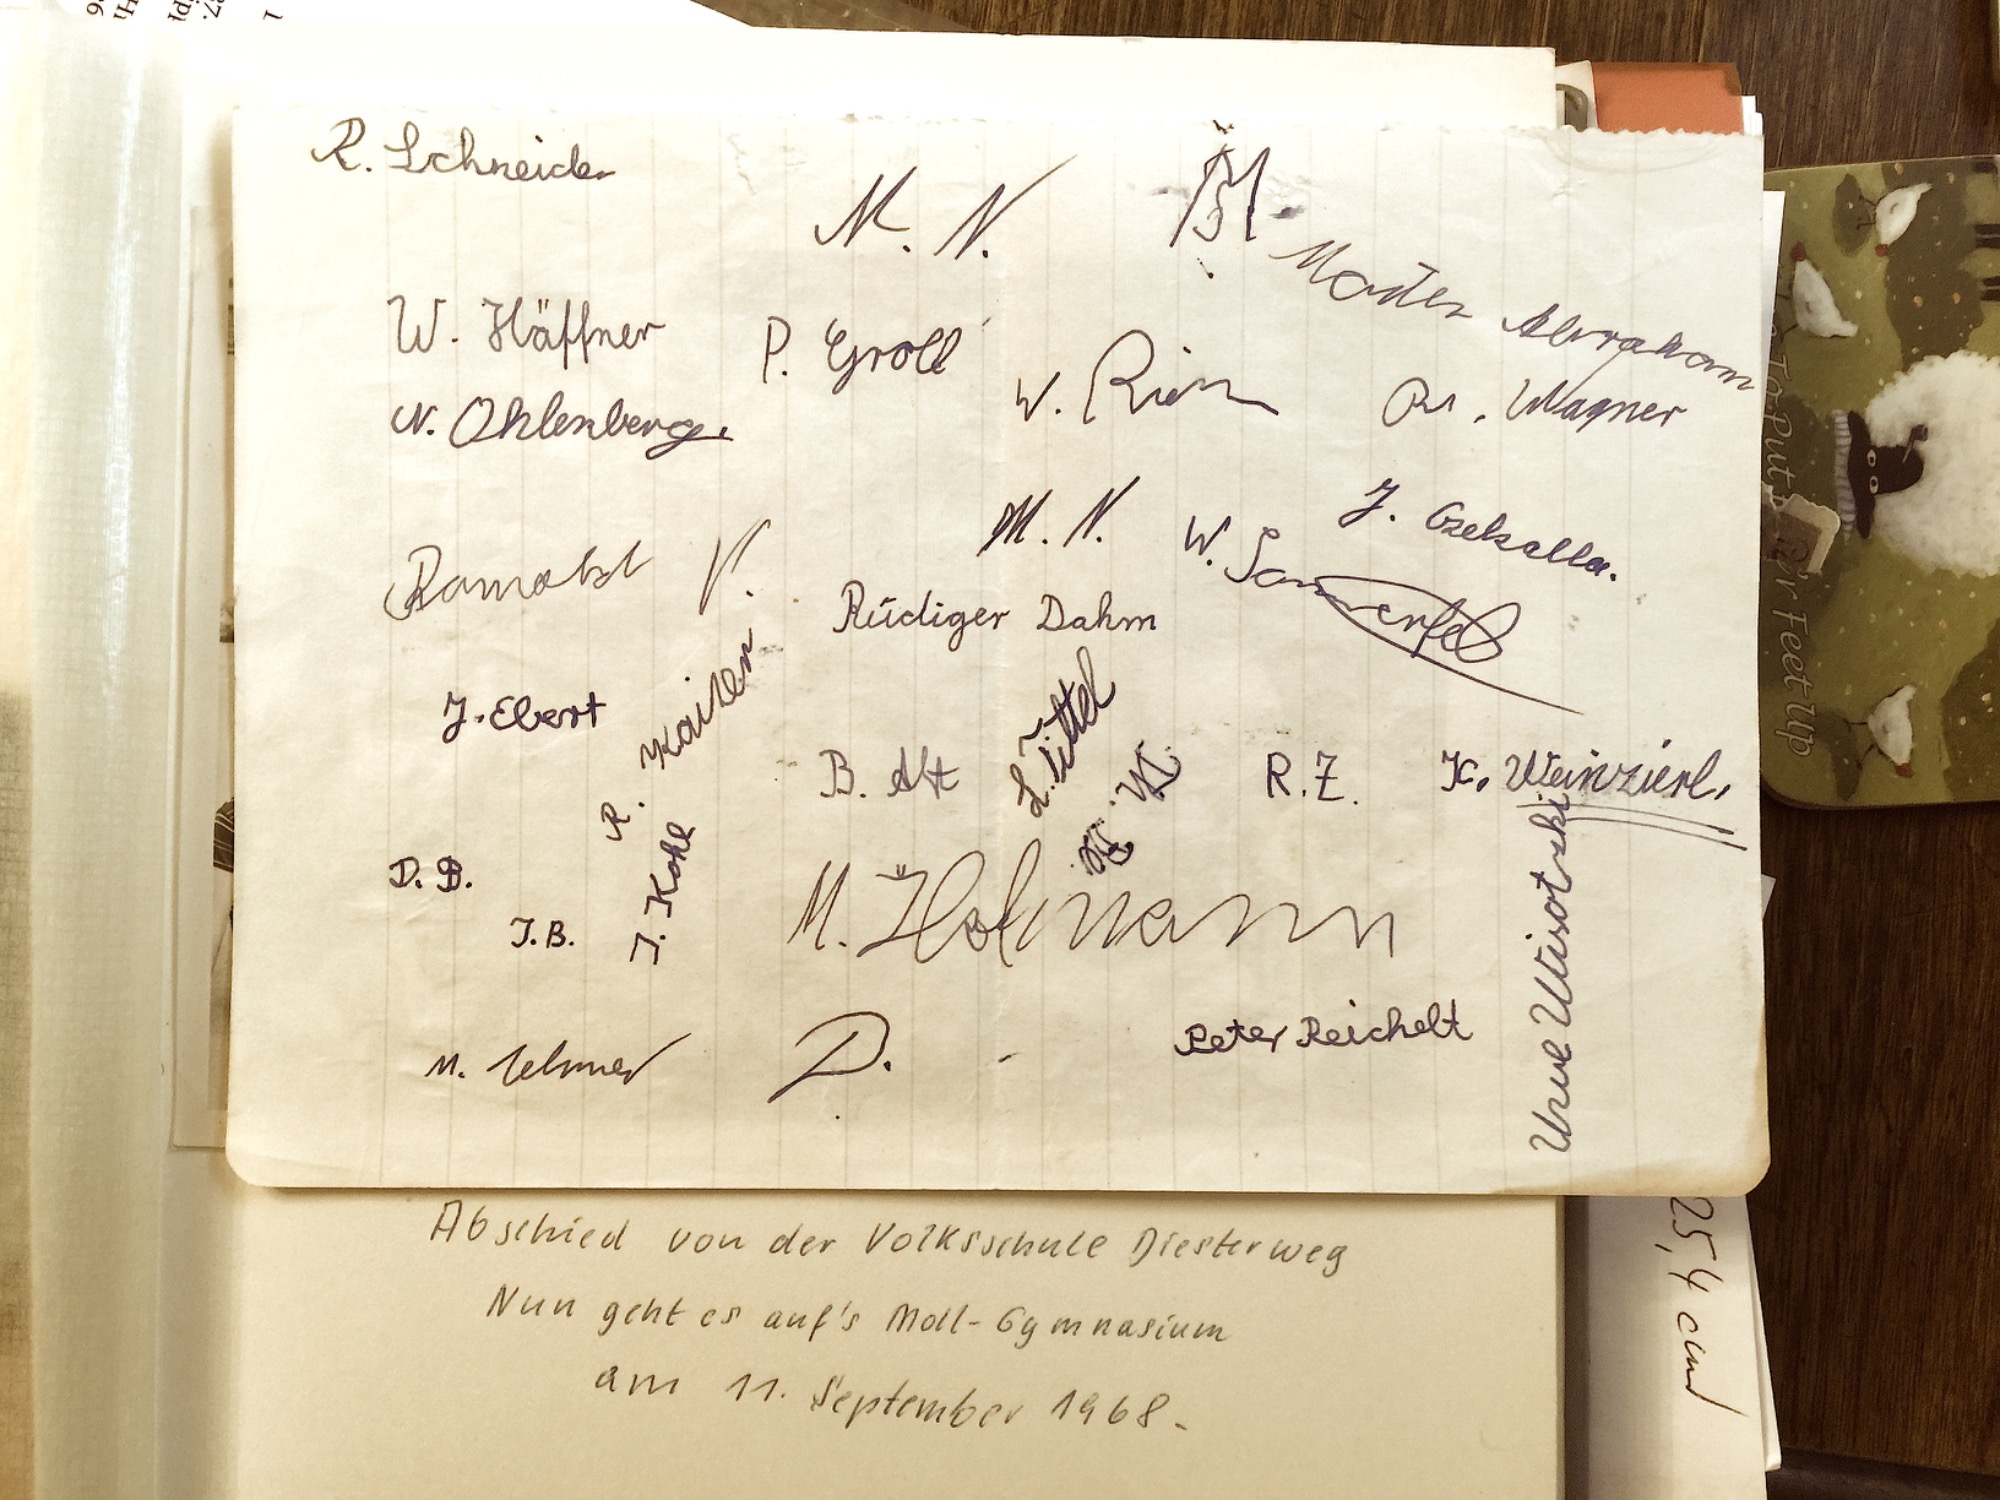 R. Schneider
M. N.
W. Häffner
P. Groll
Abraham
N. Ohlenberg.
W.
Wagner
M. N.
J.
W. Sommerfeld
V.
Rüdiger Dahm
J. Ebert
R. Kaiser
B. Alt
L. Tittel
R. Z.
K. Weinzierl.
D. B.
J. Kohl
J. B.
M. Hofmann
Uwe Wisotzki
M.
D.
Peter Reichelt
Abschied von der Volksschule Diesterweg
Nun geht es auf's Moll-Gymnasium
am 11. September 1968.
25,4 cm
To Put Your Feet Up